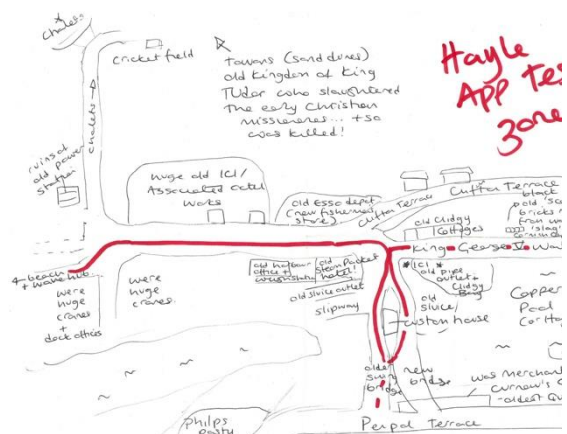 chalets
cricket field
Towans (sand dunes)
old Kingdom of King
Tudor who slaughtered
the early Christian
missionaries... + so
was killed!
Hayle
App Tes
zone
chalets
ruins of
old power
station
huge old ICI/
Associated Octel
works
old Esso depot
(new fishermens
store)
Clifton Terrace
Clifton Terrace
old Clidgy
Cottages
black
bricks
from
'slag'
King George V Wa
← beach
+ wave hub
were
huge
cranes
+
dock offices
were
huge
cranes
old harbour
office +
old
Steam Packet
hotel!
old sluice outlet
slipway
* ICI *
old pipe
outlet +
Clidgy
Bay
old
sluice
custom house
Copper
Pool
Cottag
older
swing
bridge
new
bridge
was merchant
Curnow's
- oldest
Philps
pasty
Penpol Terrace